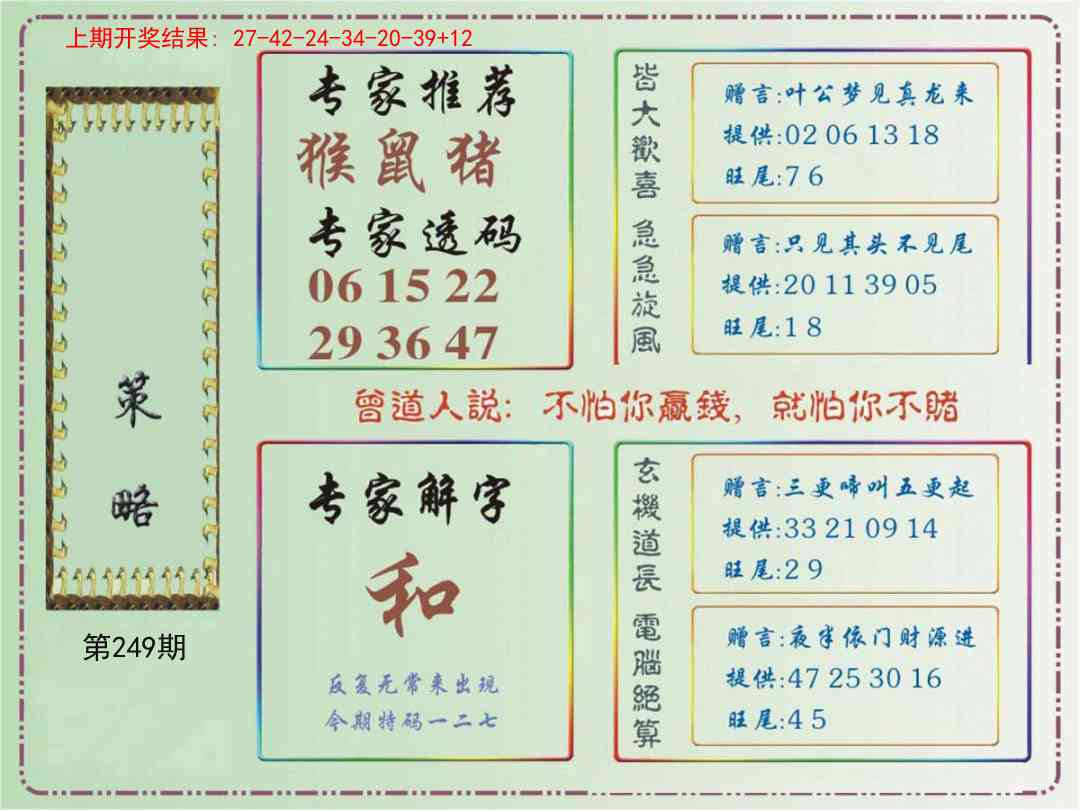 上期开奖结果: 27-42-24-34-20-39+12
策略
第249期
专家推荐
猴鼠猪
专家透码
06 15 22
29 36 47
皆大歡喜
赠言:叶公梦见真龙来
提供:02 06 13 18
旺尾:7 6
急急旋風
赠言:只见其头不见尾
提供:20 11 39 05
旺尾:1 8
曾道人説: 不怕你贏錢, 就怕你不賭
专家解字
和
反复无常来出现
今期特码一二七
玄機道長
赠言:三更啼叫五更起
提供:33 21 09 14
旺尾:2 9
電腦絕算
赠言:夜半依门财源进
提供:47 25 30 16
旺尾:4 5